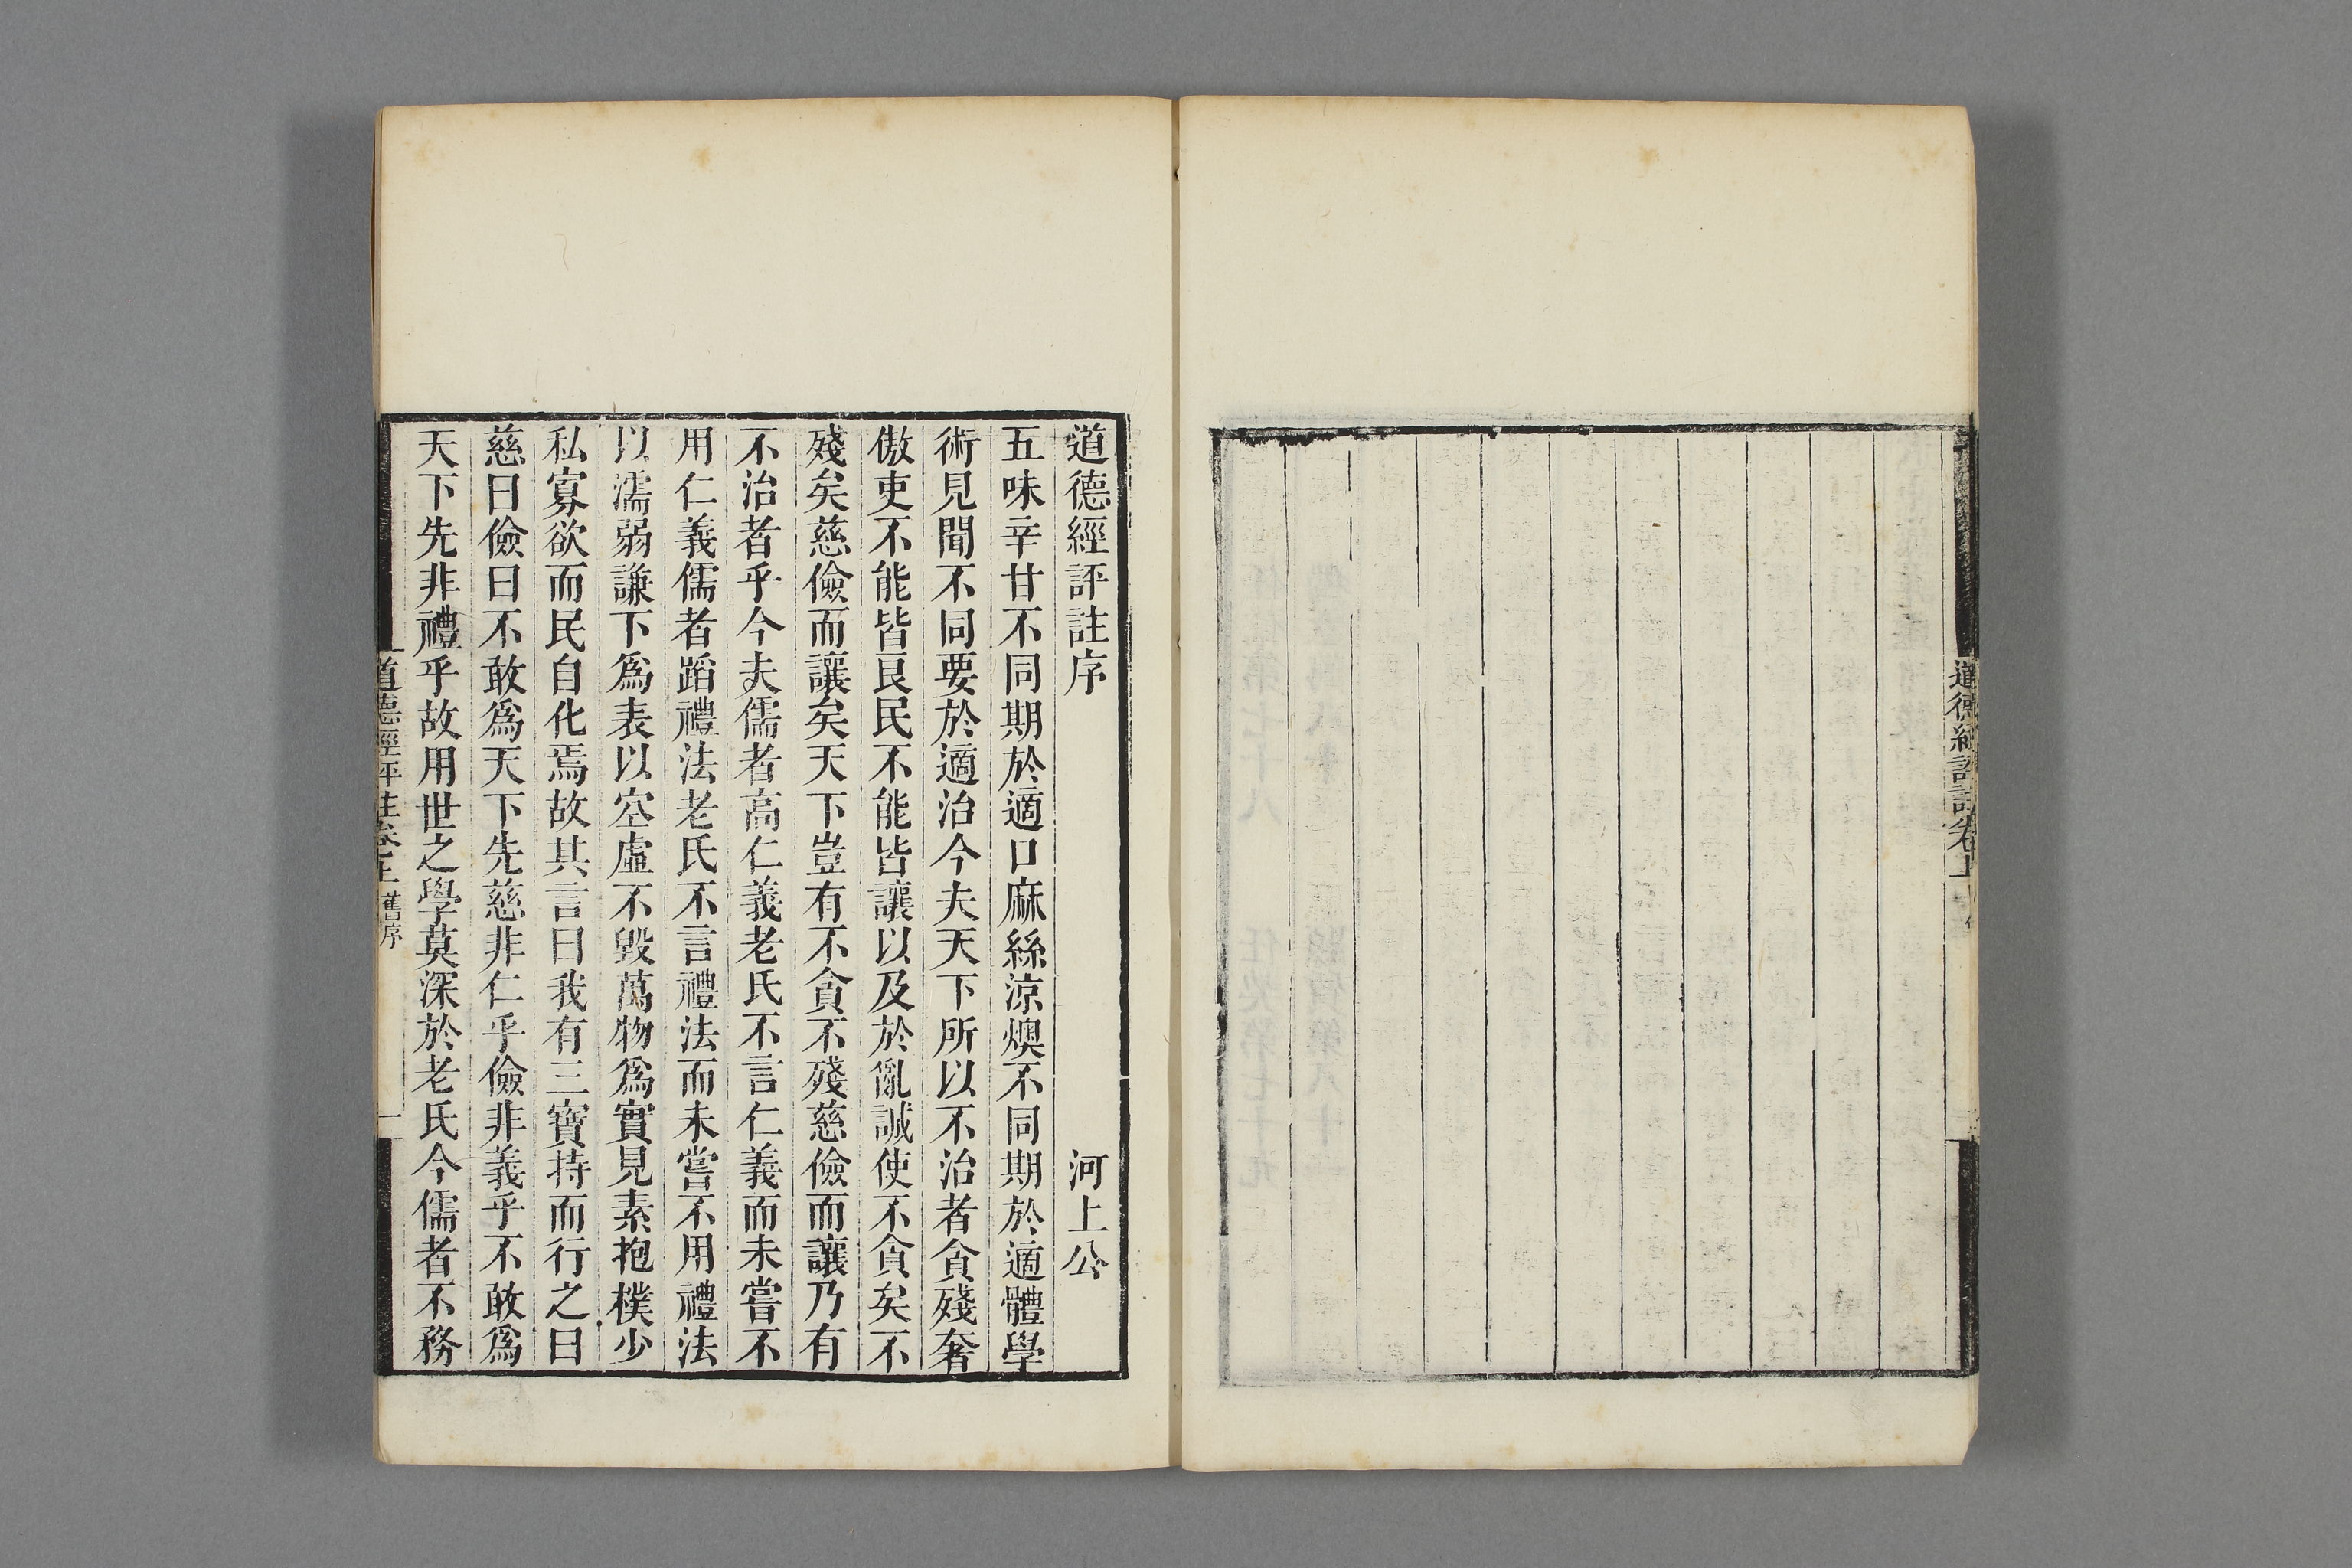 道德經評註卷上
道德經評註序 河上公
五味辛甘不同期於適口麻絲涼燠不同期於適體學
術見聞不同要於適治今夫天下所以不治者貪殘奢
傲吏不能皆良民不能皆讓以及於亂誠使不貪矣不
殘矣慈儉而讓矣天下豈有不貪不殘慈儉而讓乃有
不治者乎今夫儒者高仁義老氏不言仁義而未嘗不
用仁義儒者蹈禮法老氏不言禮法而未嘗不用禮法
以濡弱謙下爲表以空虛不毀萬物爲實見素抱樸少
私寡欲而民自化焉故其言曰我有三寶持而行之曰
慈曰儉曰不敢爲天下先慈非仁乎儉非義乎不敢爲
天下先非禮乎故用世之學莫深於老氏今儒者不務
道德經評註卷上 舊序 一